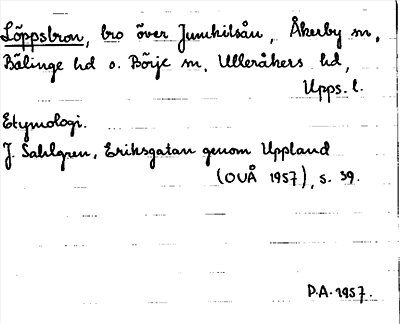 Löppsbron, bro över Jumkilsån, Åkerby sn,
Bälinge hd o. Börje sn, Ulleråkers hd,
Upps. l.
Etymologi.
J. Sahlgren, Eriksgatan genom Uppland
(OUÅ 1957), s. 39.
P.A. 1957.